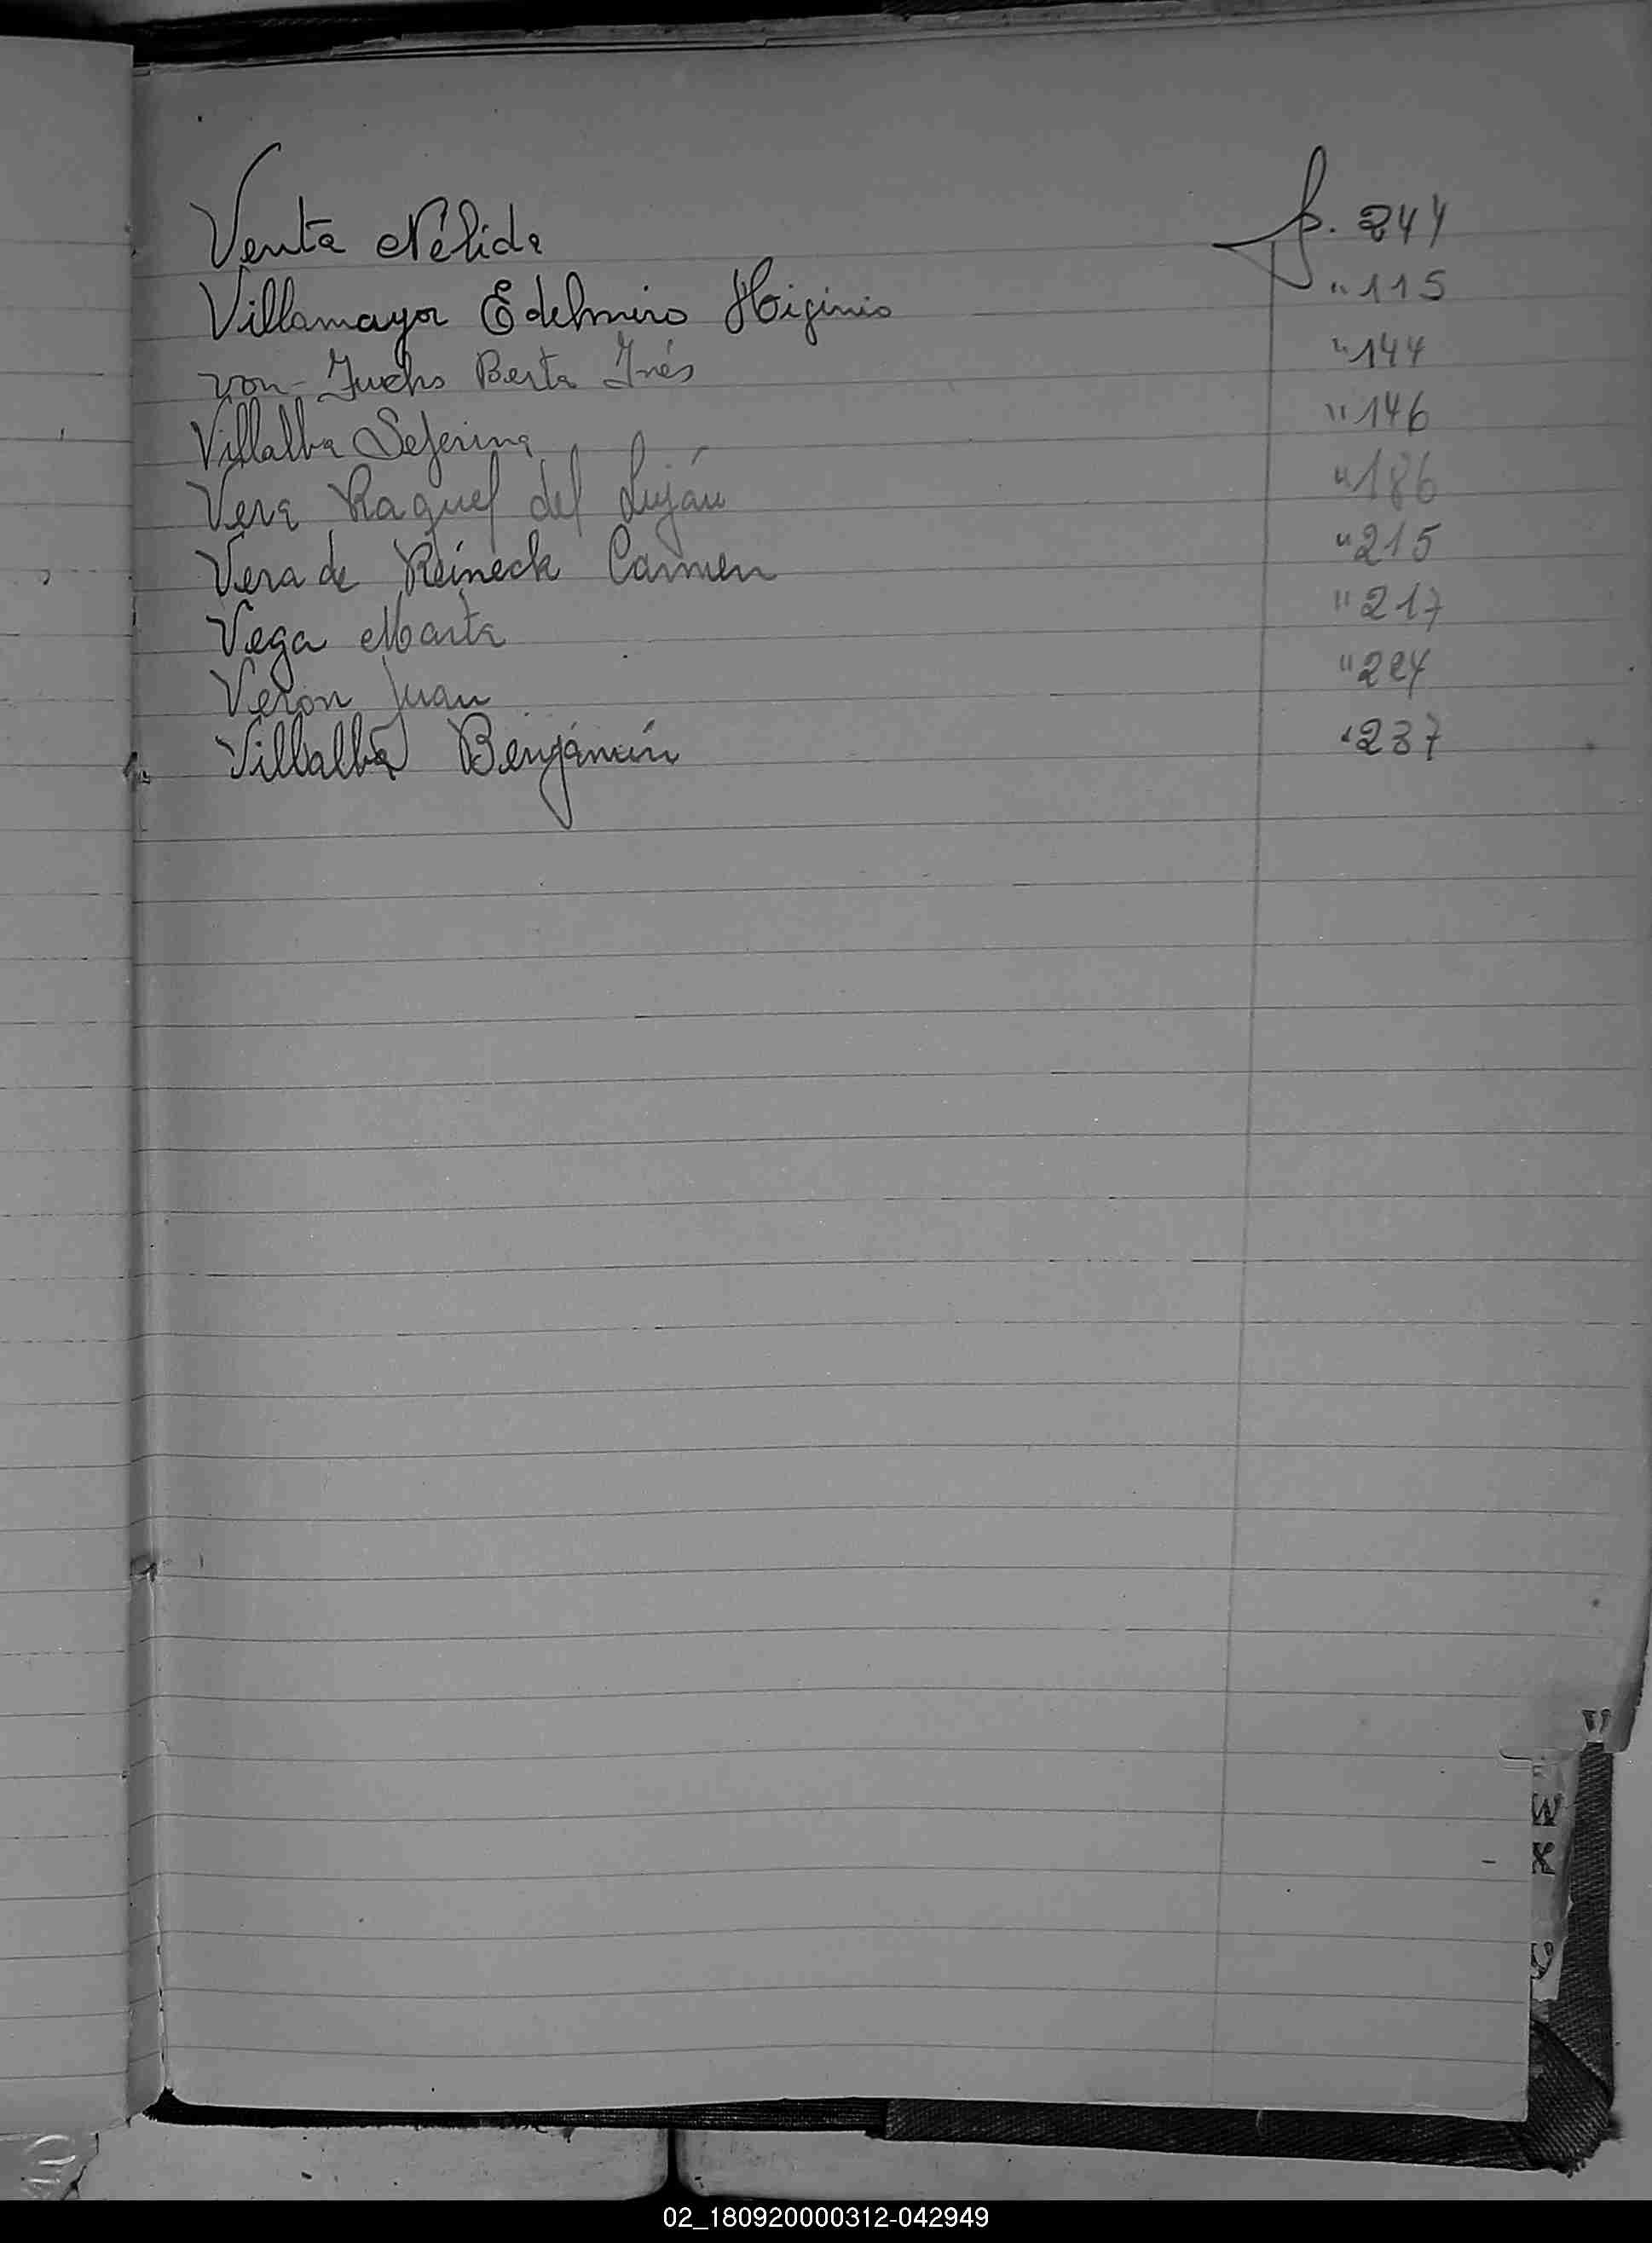 Venta Nélida f. 244
Villamayor Edelmiro Higinio " 115
von-Fuchs Berta Inés " 144
Villalba Seferina " 146
Vera Raquel del Luján " 186
Vera de Reineck Carmen " 215
Vega Marta " 217
Veron Juan " 224
Villalba Benjamín " 237
V
W
X
02_180920000312-042949